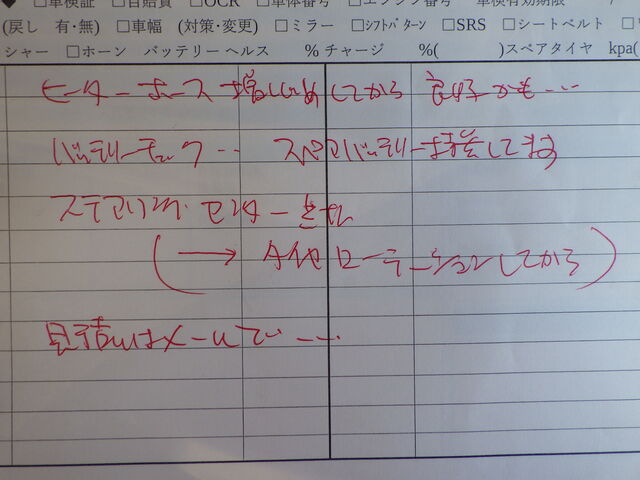 ◆ □車検証 □自賠責 □OCR □車体番号 □エンジン番号 車検有効期限 /
(戻し 有・無) □車幅 (対策・変更) □ミラー □ｼﾌﾄﾊﾟﾀｰﾝ □SRS □シートベルト
シャー □ホーン バッテリーヘルス %チャージ %( )スペアタイヤ kpa(
ヒーターホース増し締め してから 良好かも…
バッテリーチェック… スペアバッテリー搭載してます
ステアリング・センターきせん
(→ タイヤローテーションしてから)
見積りはメールで……